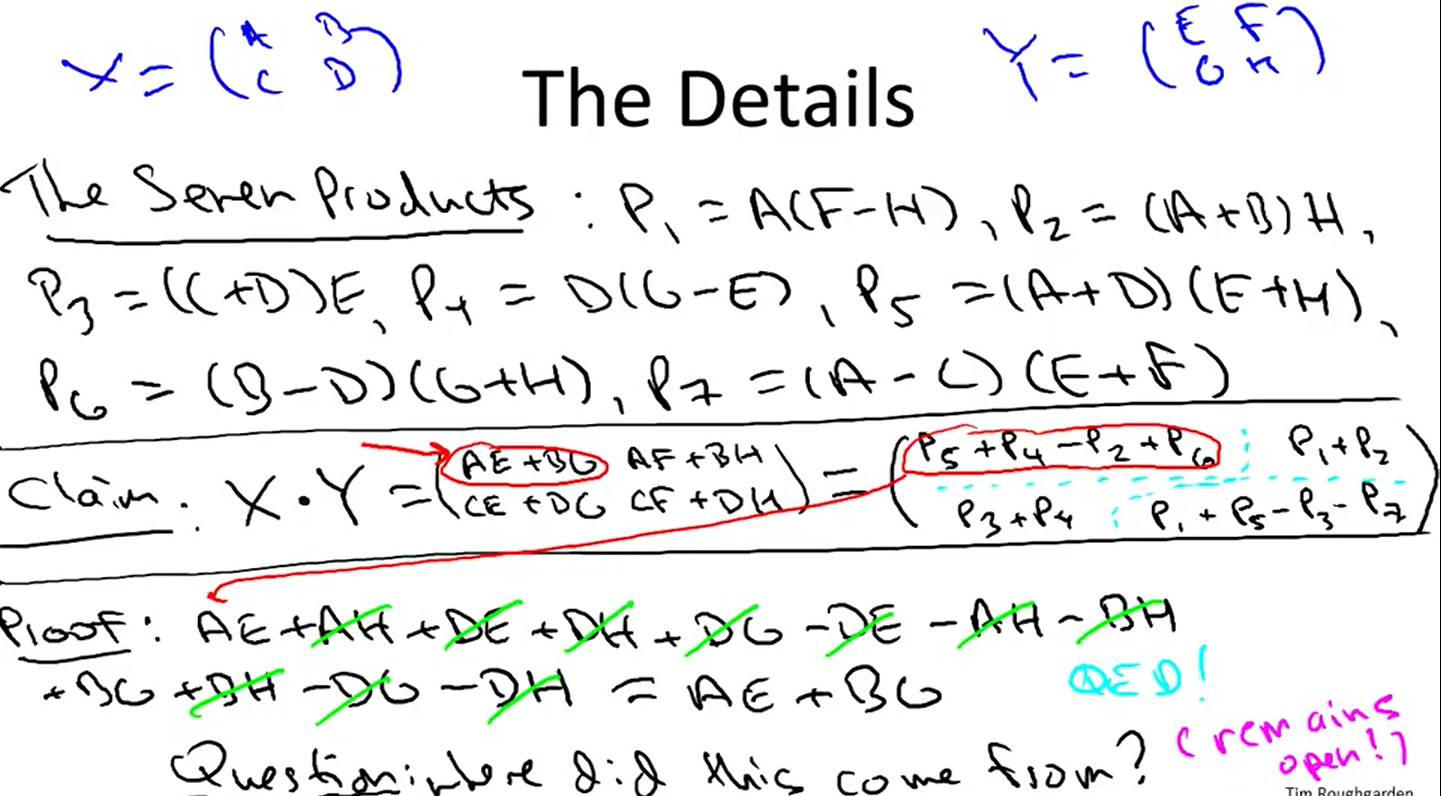 X = (A B
C D)
Y = (E F
G H)
The Details
The Seven Products : P₁ = A(F-H), P₂ = (A+B)H,
P₃ = (C+D)E, P₄ = D(G-E), P₅ = (A+D)(E+H),
P₆ = (B-D)(G+H), P₇ = (A-C)(E+F)
Claim: X·Y = (AE+BG AF+BH
CE+DG CF+DH) = (P₅+P₄-P₂+P₆ P₁+P₂
P₃+P₄ P₁+P₅-P₃-P₇)
Proof: AE+AH+DE+DH+DG-DE-AH-BH
+BG+BH-DG-DH = AE+BG QED!
Question: where did this come from? (remains
open!)
Tim Roughgarden